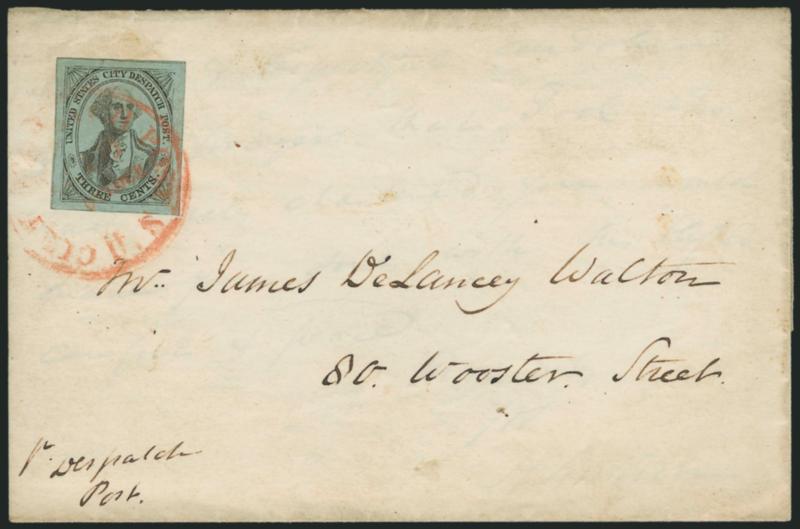 UNITED STATES CITY DESPATCH POST.
THREE CENTS.
U.S.
CITY
Mr. James DeLancey Walton
80. Wooster. Street.
pr. Despatch
Post.